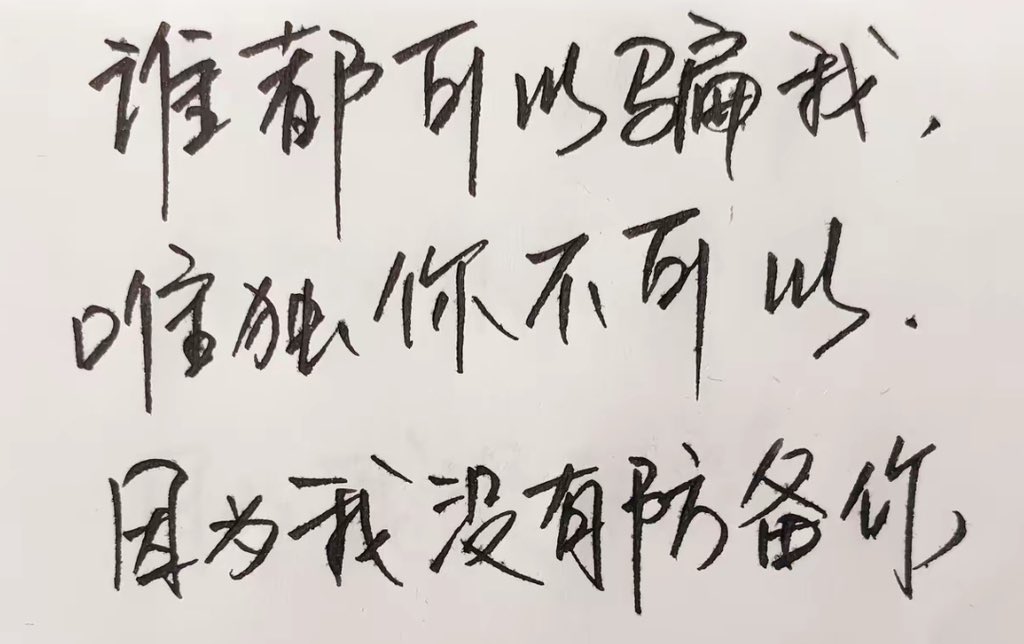 谁都可以骗我.
唯独你不可以.
因为我没有防备你